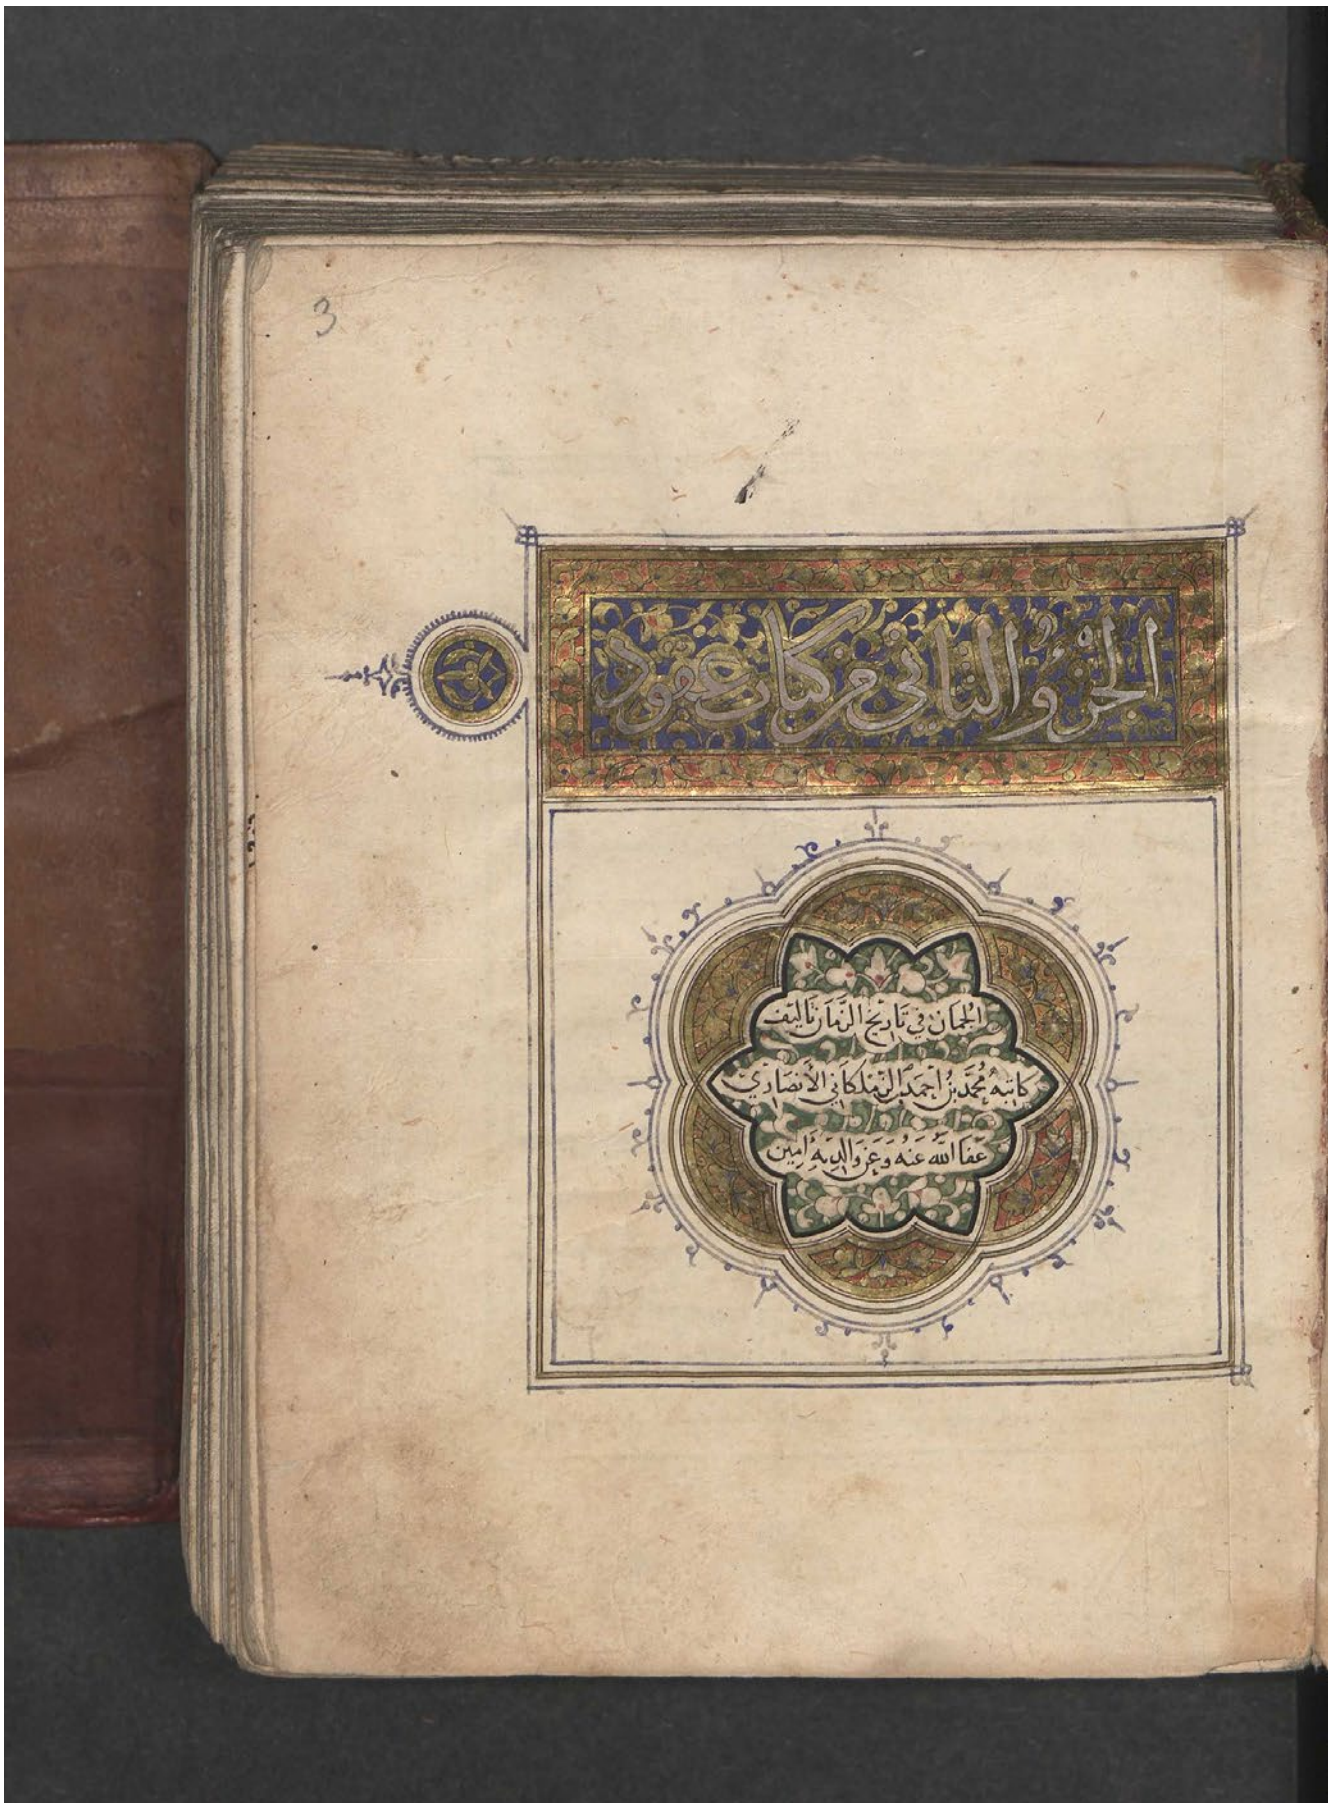 3
الجزؤ الثاني من كتاب عقود
الجمان في تاريخ الزمان تاليف
كاتبه محمد بن احمد الزملكاني الأنصاري
عفا الله عنه وعن والديه أمين